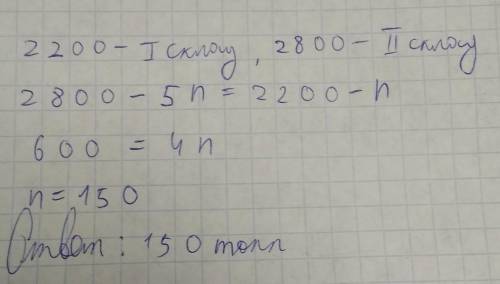 2200 - I склад, 2800 - II склад
2800 - 5n = 2200 - n
600 = 4n
n = 150
Ответ: 150 тонн